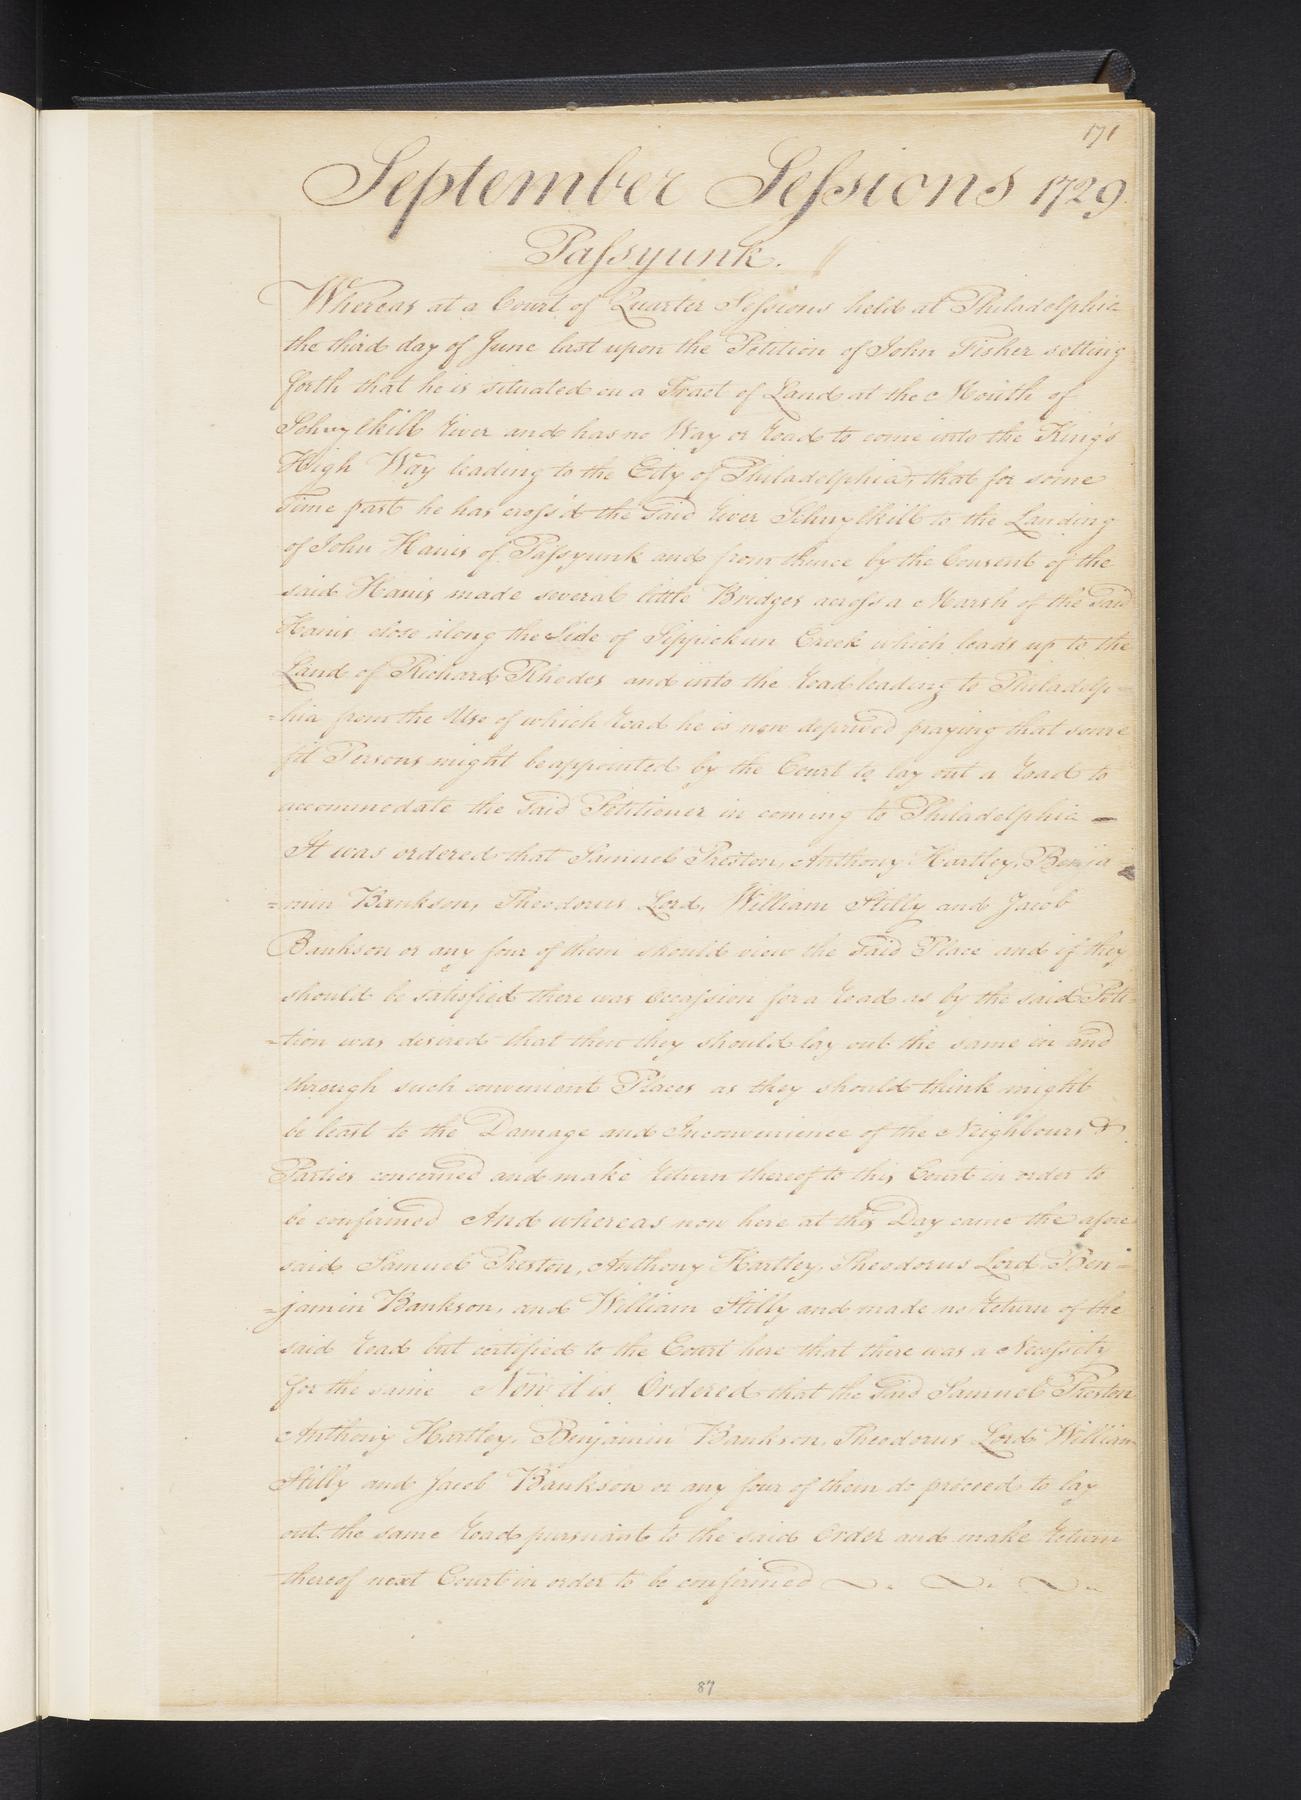 171
September Sessions 1729.
Passyunk.
Whereas at a Court of Quarter Sessions held at Philadelphia
the third day of June last upon the Petition of John Fisher setting
forth that he is situated on a Tract of Land at the Mouth of
Schuylkill River and has no Way or Road to come into the King's
High Way leading to the City of Philadelphia, that for some
Time past he has cross'd the said River Schuylkill to the Landing
of John Hanis of Passyunk and from thence by the Consent of the
said Hanis made several little Bridges across a Marsh of the said
Hanis close along the Side of Sippickun Creek which leads up to the
Land of Richard Rhodes and into the Road leading to Philadelp-
=hia from the Use of which Road he is now deprived praying that some
fit Persons might be appointed by the Court to lay out a Road to
accommodate the said Petitioner in coming to Philadelphia —
It was ordered that Samuel Preston, Anthony Hartley, Benja
=min Bankson, Theodorus Lord, William Stilly and Jacob
Bankson or any four of them should view the said Place and if they
should be satisfied there was Occassion for a Road as by the said Peti
=tion was desired that then they should lay out the same in and
through such convenient Places as they should think might
be least to the Damage and Inconvenience of the Neighbours &
Parties concerned and make Return thereof to this Court in order to
be confirmed And whereas now here at this Day came the afore
said Samuel Preston, Anthony Hartley, Theodorus Lord Ben-
=jamin Bankson, and William Stilly and made no Return of the
said Road but certified to the Court here that there was a Necessity
for the same Now it is Ordered that the said Samuel Preston
Anthony Hartley, Benjamin Bankson, Theodorus Lord William
Stilly and Jacob Bankson or any four of them do proceed to lay
out the same Road pursuant to the said Order and make Return
thereof next Court in order to be confirmed
87